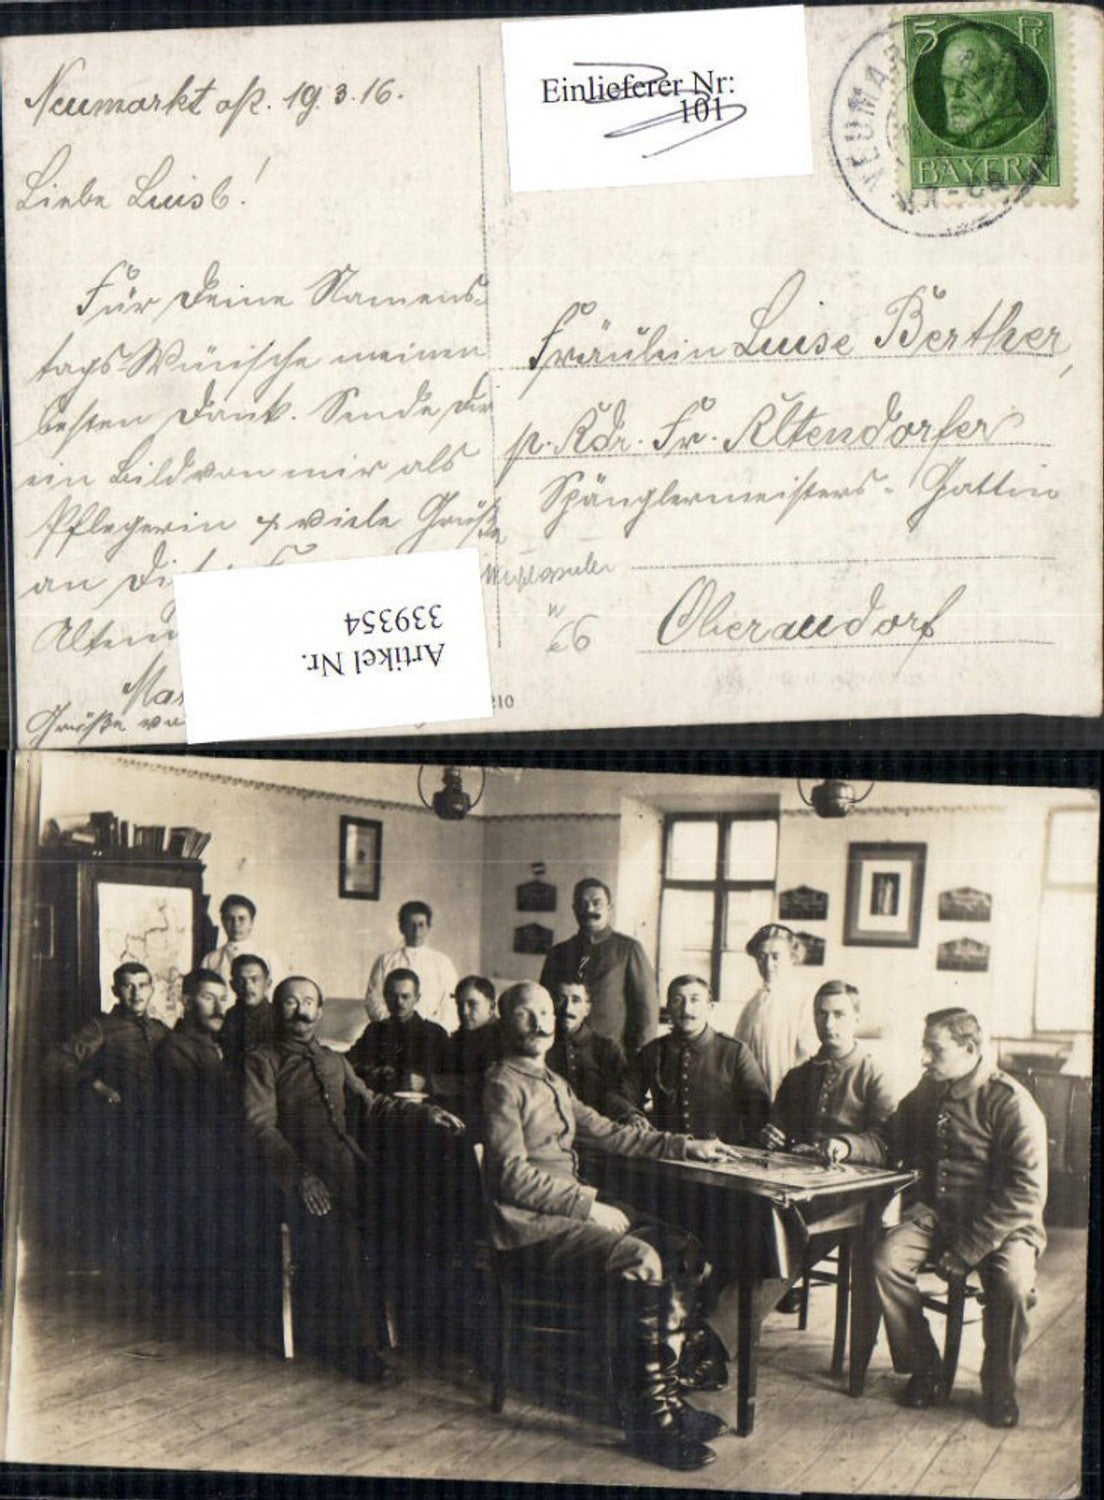 Neumarkt o/R. 19.3.16.
Liebe Luisl!
Für Deine Namens-
tags-Wünsche meinen
besten Dank. Sende Dir
ein Bild von mir als
Pflegerin & viele Grüße
an Dich
Grüße
Einlieferer Nr:
101
5 Pf
BAYERN
NEUMAR
Fräulein Luise Berther,
p. Adr. Fr. Altendorfer
Spänglermeisters-Gattin
66
Oberaudorf
Artikel Nr.
339354
210